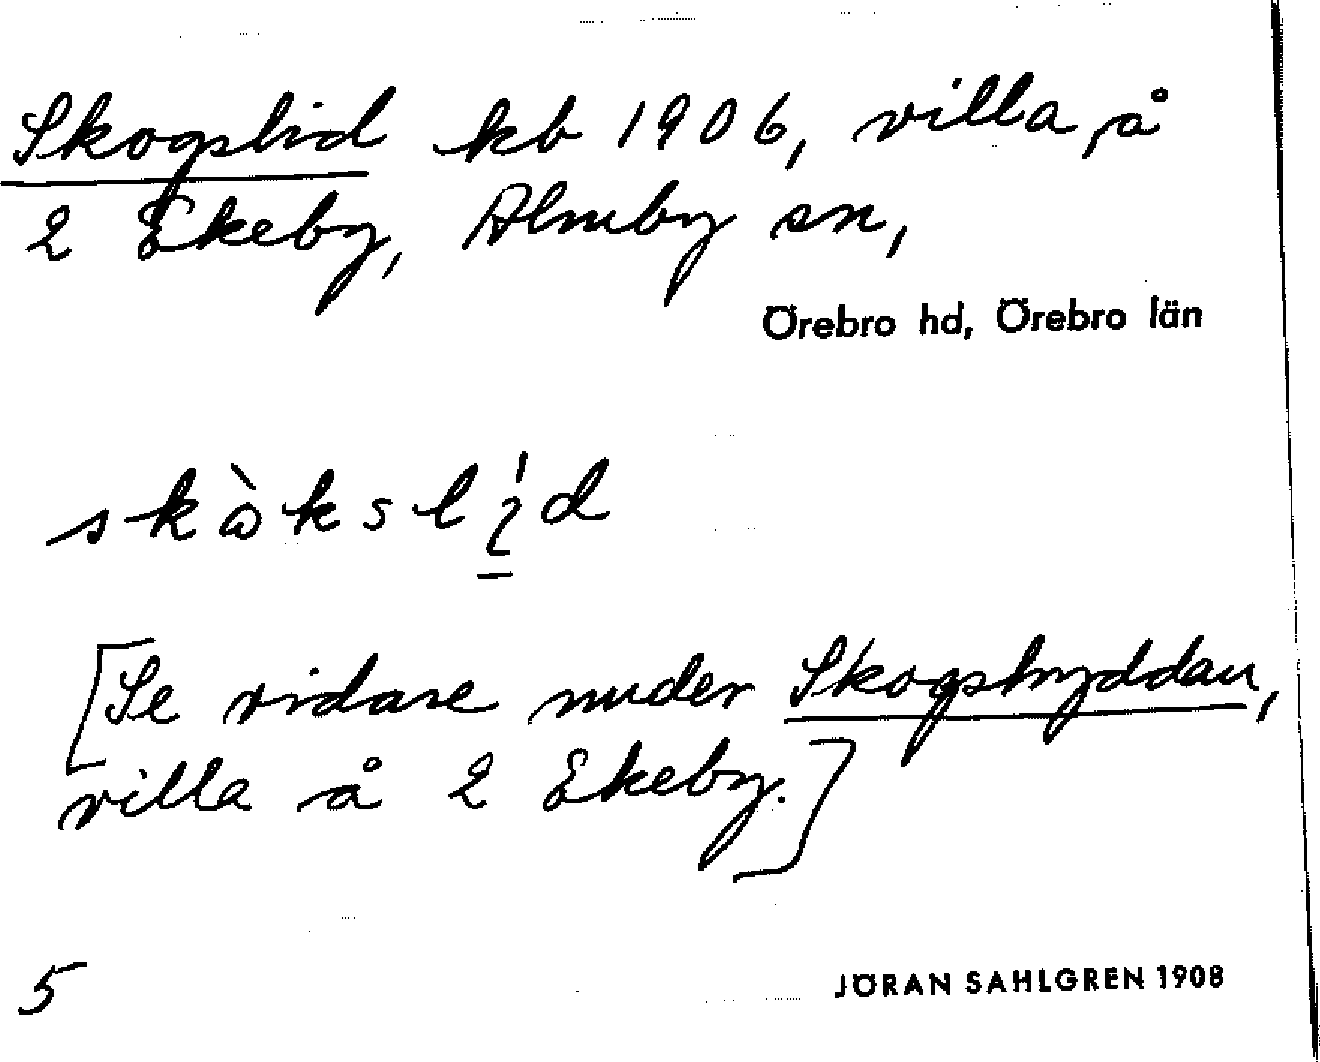 Skogslid kb 1906, villa, å
2 Ekeby, Almby sn,
Örebro hd, Örebro län
[Se vidare under Skogshyddan,
villa å 2 Ekeby.]
5
JÖRAN SAHLGREN 1908